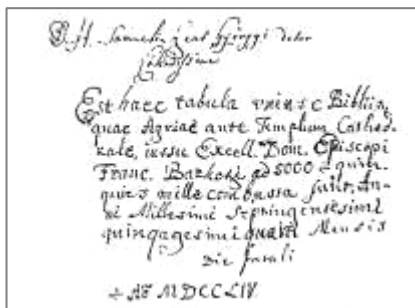 Est haec tabula unius e Bibliis
quae Agriae ante Templum Cathed-
rale, iussu Excell. Dom. Episcopi
Franc. Barkoki ad 5000 = quin-
quies mille combussa sunt, An-
ni Millesimi Septingentesimi
quinquagesimi quarti Mensis
Die
A MDCCLIV.